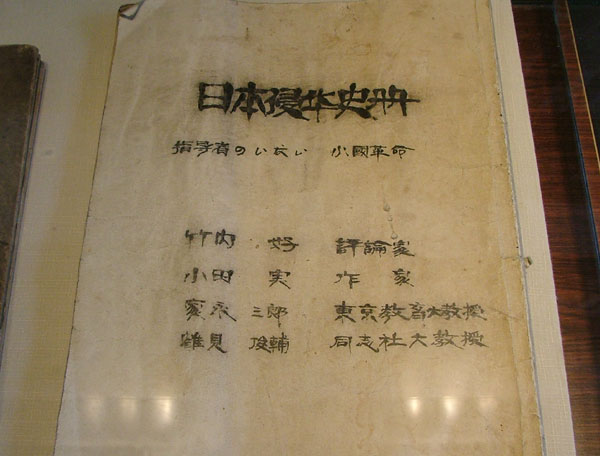 日本侵华史册
指导者のいない 小國革命
竹内 好 評論家
小田 実 作家
家永 三郎 東京教育大教授
雖見 俊輔 同志社大教授